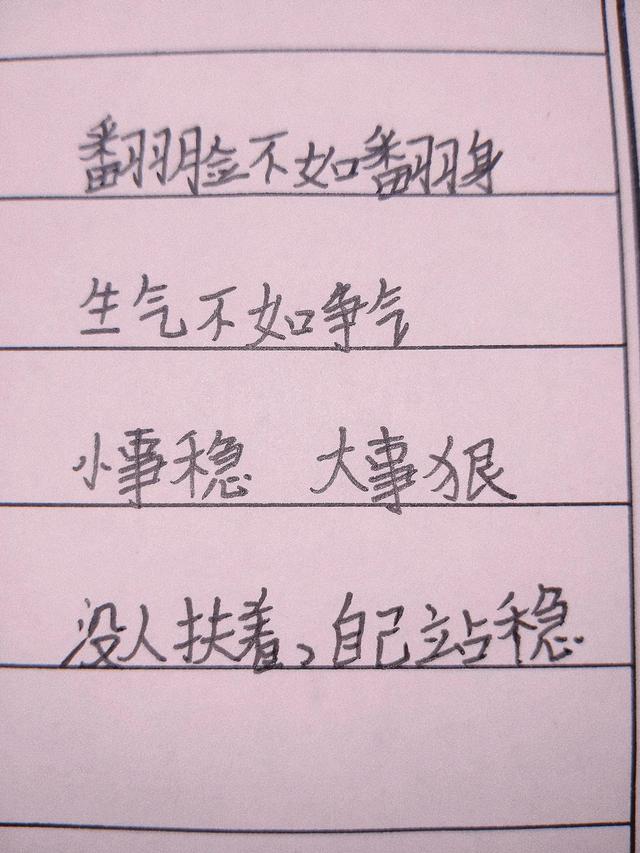 翻脸不如翻身
生气不如争气
小事稳 大事狠
没人扶着,自己站稳